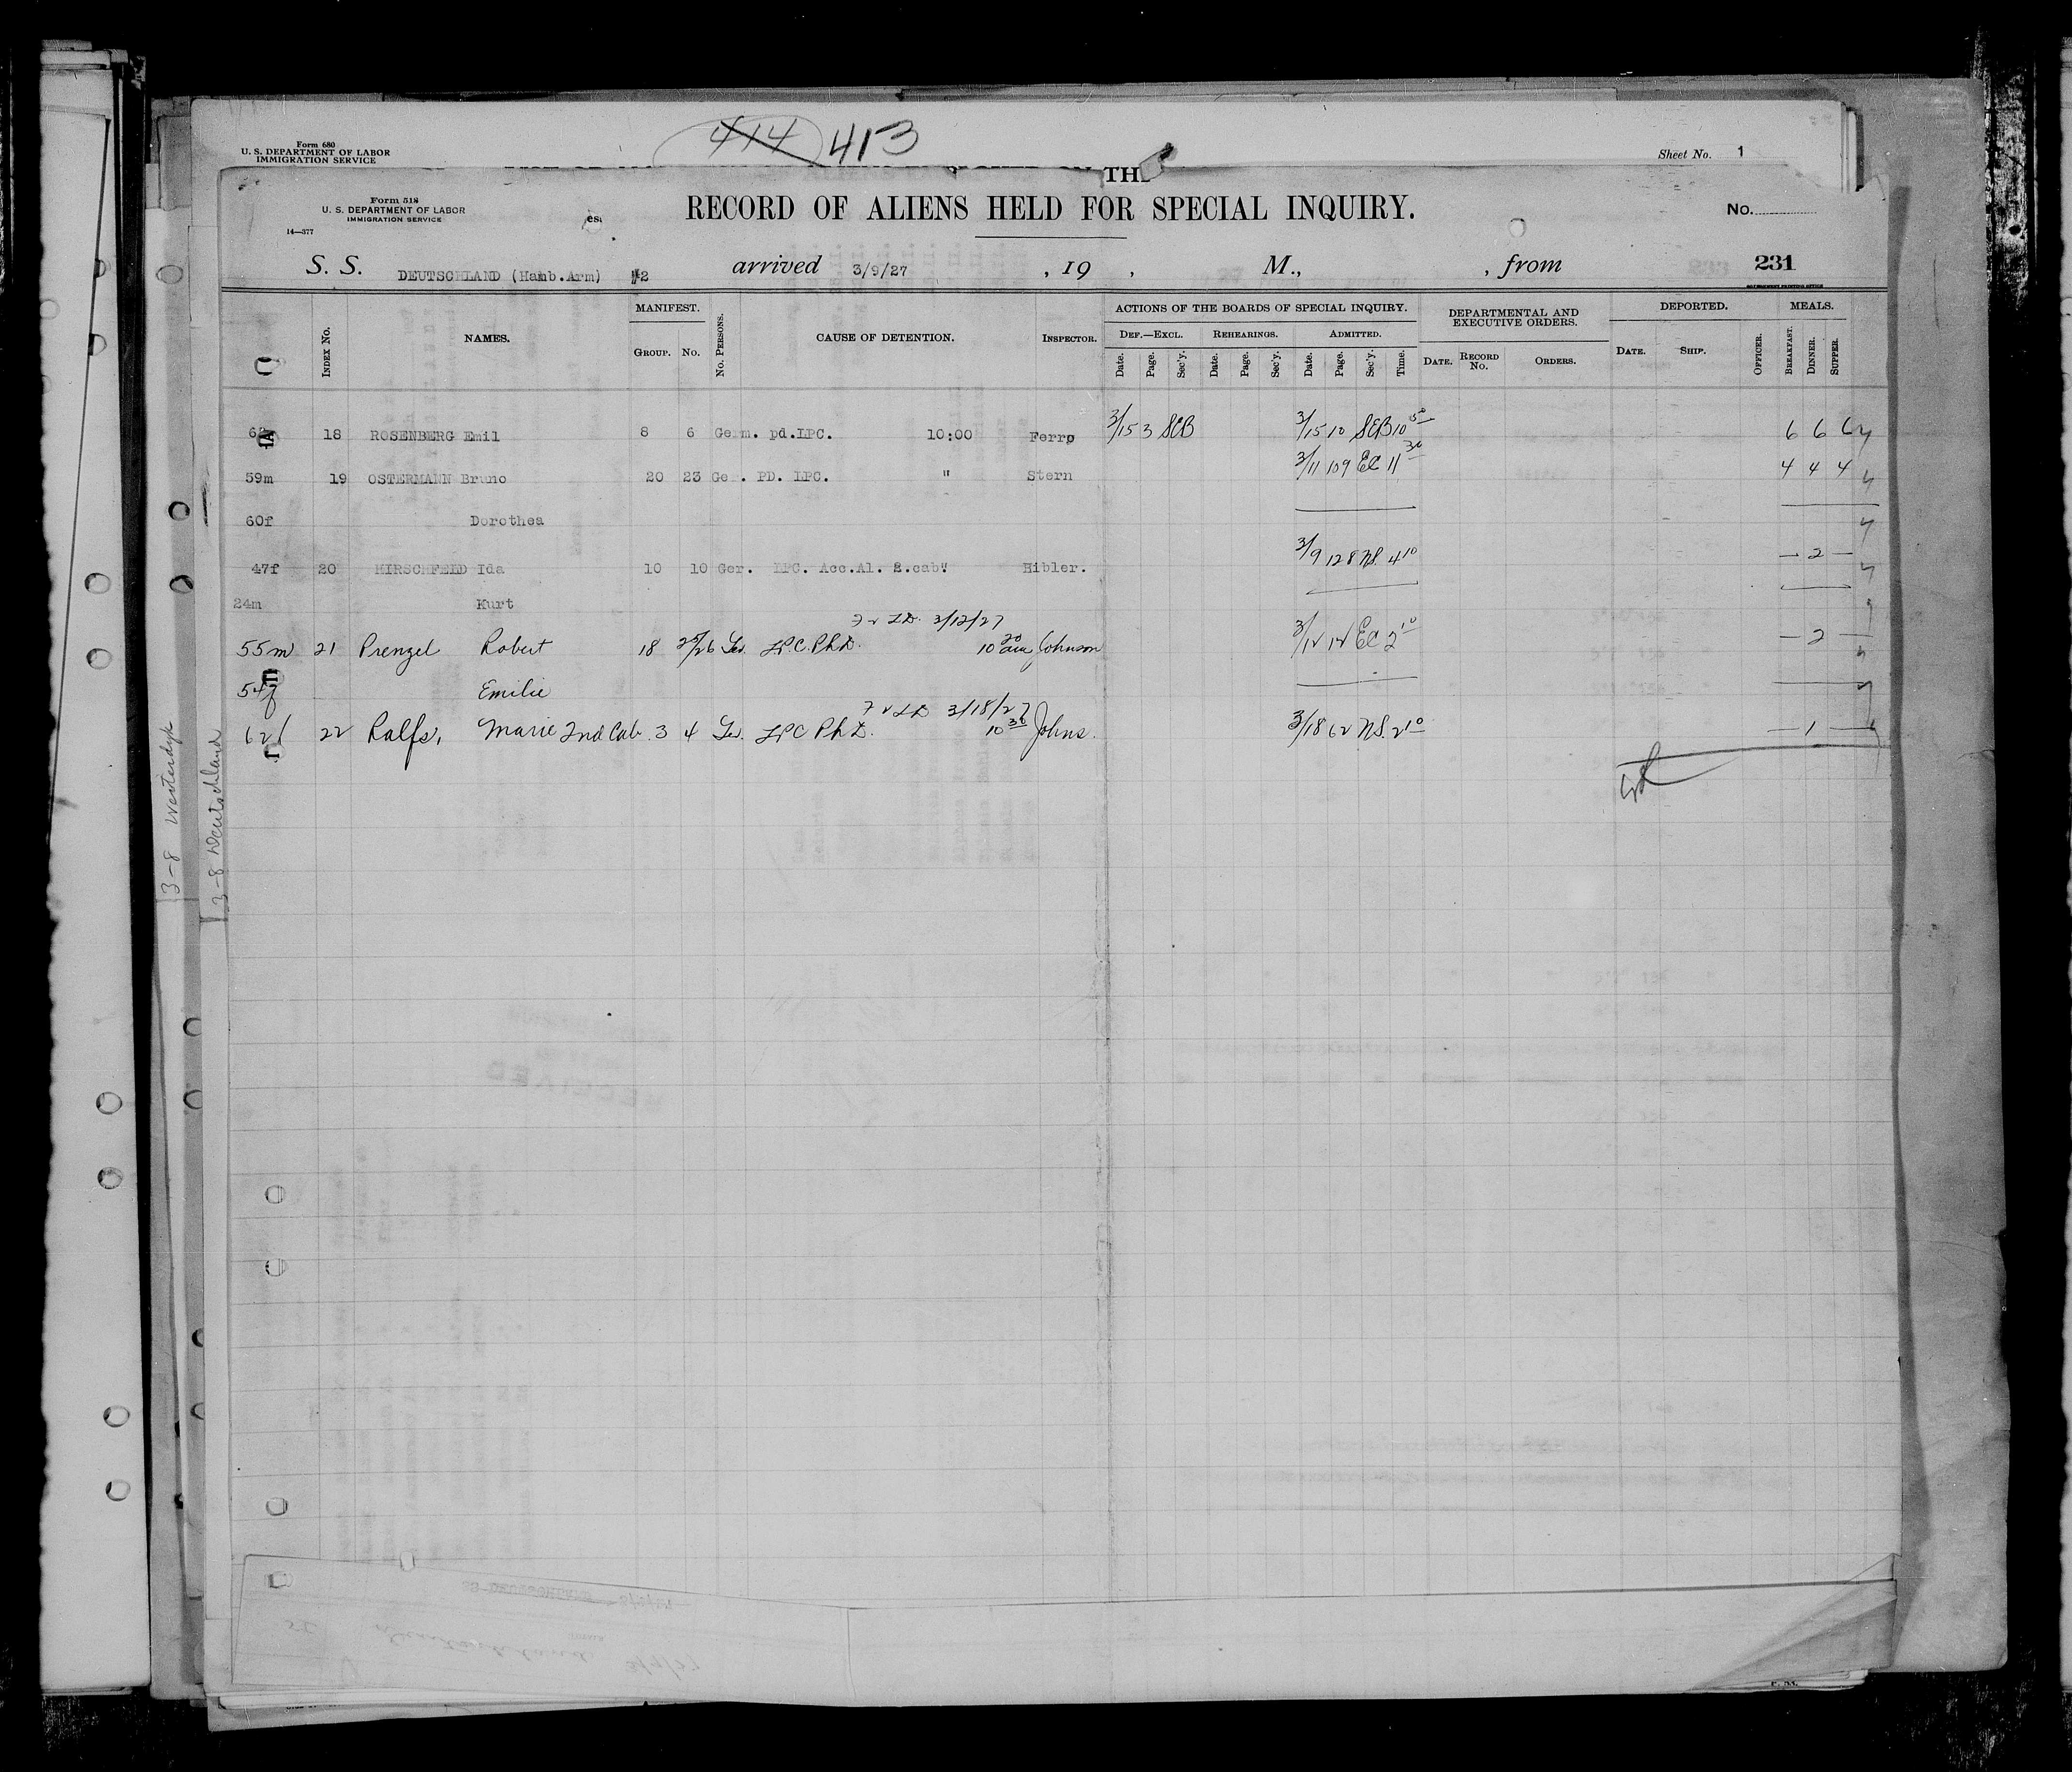 414 413
Form 680
U. S. DEPARTMENT OF LABOR
IMMIGRATION SERVICE
Sheet No. 1
Form 518
U. S. DEPARTMENT OF LABOR
IMMIGRATION SERVICE
14—377
RECORD OF ALIENS HELD FOR SPECIAL INQUIRY.
No.
S. S. DEUTSCHLAND (Hamb.Arm) #2 arrived 3/9/27 , 19 , M., , from 231
Index No. NAMES. MANIFEST. Group. No. No. Persons. CAUSE OF DETENTION. Inspector. ACTIONS OF THE BOARDS OF SPECIAL INQUIRY. DEPARTMENTAL AND EXECUTIVE ORDERS. DEPORTED. MEALS.
Def.—Excl. Rehearings. Admitted.
Date. Page. Sec'y. Date. Page. Sec'y. Date. Page. Sec'y. Time. Date. Record No. Orders. Date. Ship. Officer. Breakfast. Dinner. Supper.
18 ROSENBERG Emil 8 6 Germ. pd.LPC. 10:00 Ferro 3/15 3 SCB 3/15 10 SCB 10 50 6 6 6
59m 19 OSTERMANN Bruno 20 23 Ger. PD. LPC. " Stern 3/11 109 EC 11 30 4 4 4
60f Dorothea
47f 20 HIRSCHFELD Ida 10 10 Ger. LPC. Acc.Al. 2.cab" Hibler. 3/9 128 NS. 4 10 — 2 —
24m Kurt
3/12/27
55m 21 Prenzel Robert 18 25/26 Ger. LPC. Ph.D. 10 20 am Johnson 3/12 12 EC 2 10 — 2 —
54f Emilie
3/18/27
62f 22 Ralfs, Marie 2nd Cab. 3 4 Ger. LPC Ph D. 10 30 Johns. 3/18 62 NS. 2 10 — 1 —
3-8 Westerdyk
3-8 Deutschland